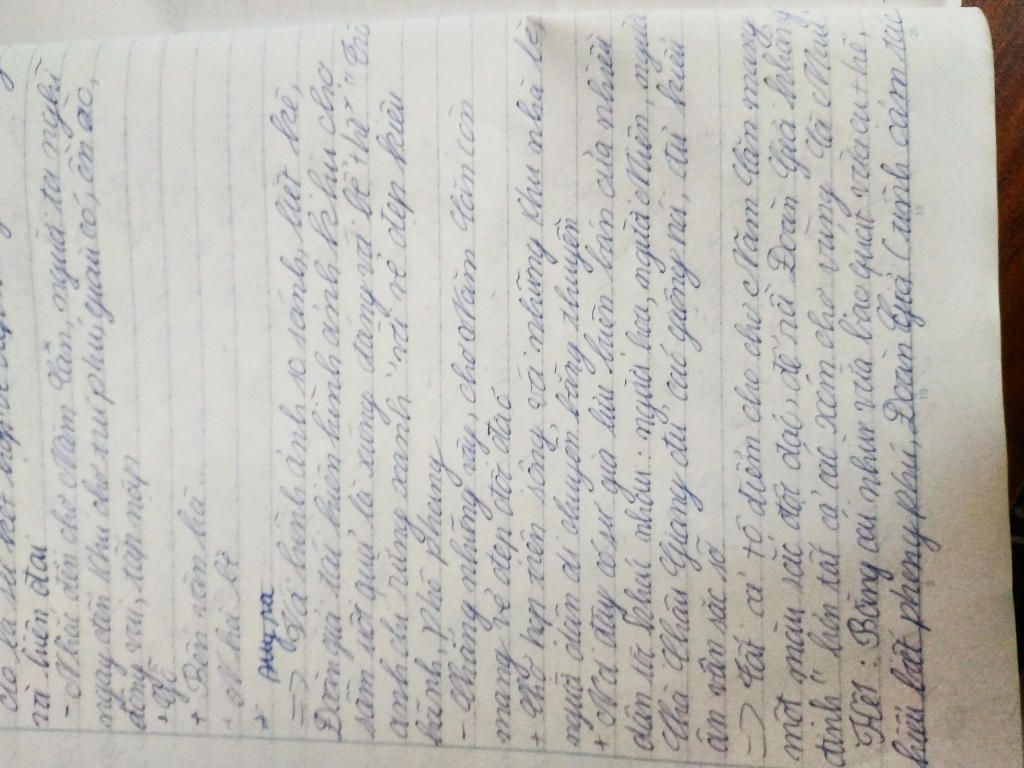 và hiện đại
- Nhắc tới chợ Năm Căn, người ta nghĩ
ngay đến khu chợ trù phú, giàu có, ồn ào,
đông vui, tấp nập
+ Gỗ
+ Bến vân hà...
+ Nhà bè
+ Anguna
=> Hà hình ảnh so sánh, liệt kê,
Đoàn Giỏi tái hiện hình ảnh khu chợ
sầm uất quí là xứng đáng với bề thế "Trù
anh chi rừng xanh" với vẻ đẹp kiêu
hãnh, phô phang
- Không những vậy, chợ Năm Căn còn
mang vẻ đẹp độc đáo
+ Chợ họp trên sông với những khu nhà bè,
người dân di chuyển bằng thuyền
+ Nơi đây có sự giao lưu buôn bán của nhiều
dân tộc khác nhau: người hoa, người Miên, người
Chà Châu Giang đủ các giọng nói, đủ kiểu
ăn vận sặc sỡ
=> Tất cả tô điểm cho chợ Năm Căn mang
một màu sắc độc đáo, để nhà Đoàn Giỏi khẳng
định hơn tất cả các xóm chợ vùng Cà Mau
Kết: Bằng cái nhìn vừa bao quát vừa cụ thể,
hiểu biết phong phú, Đoàn Giỏi (tình cảm tác